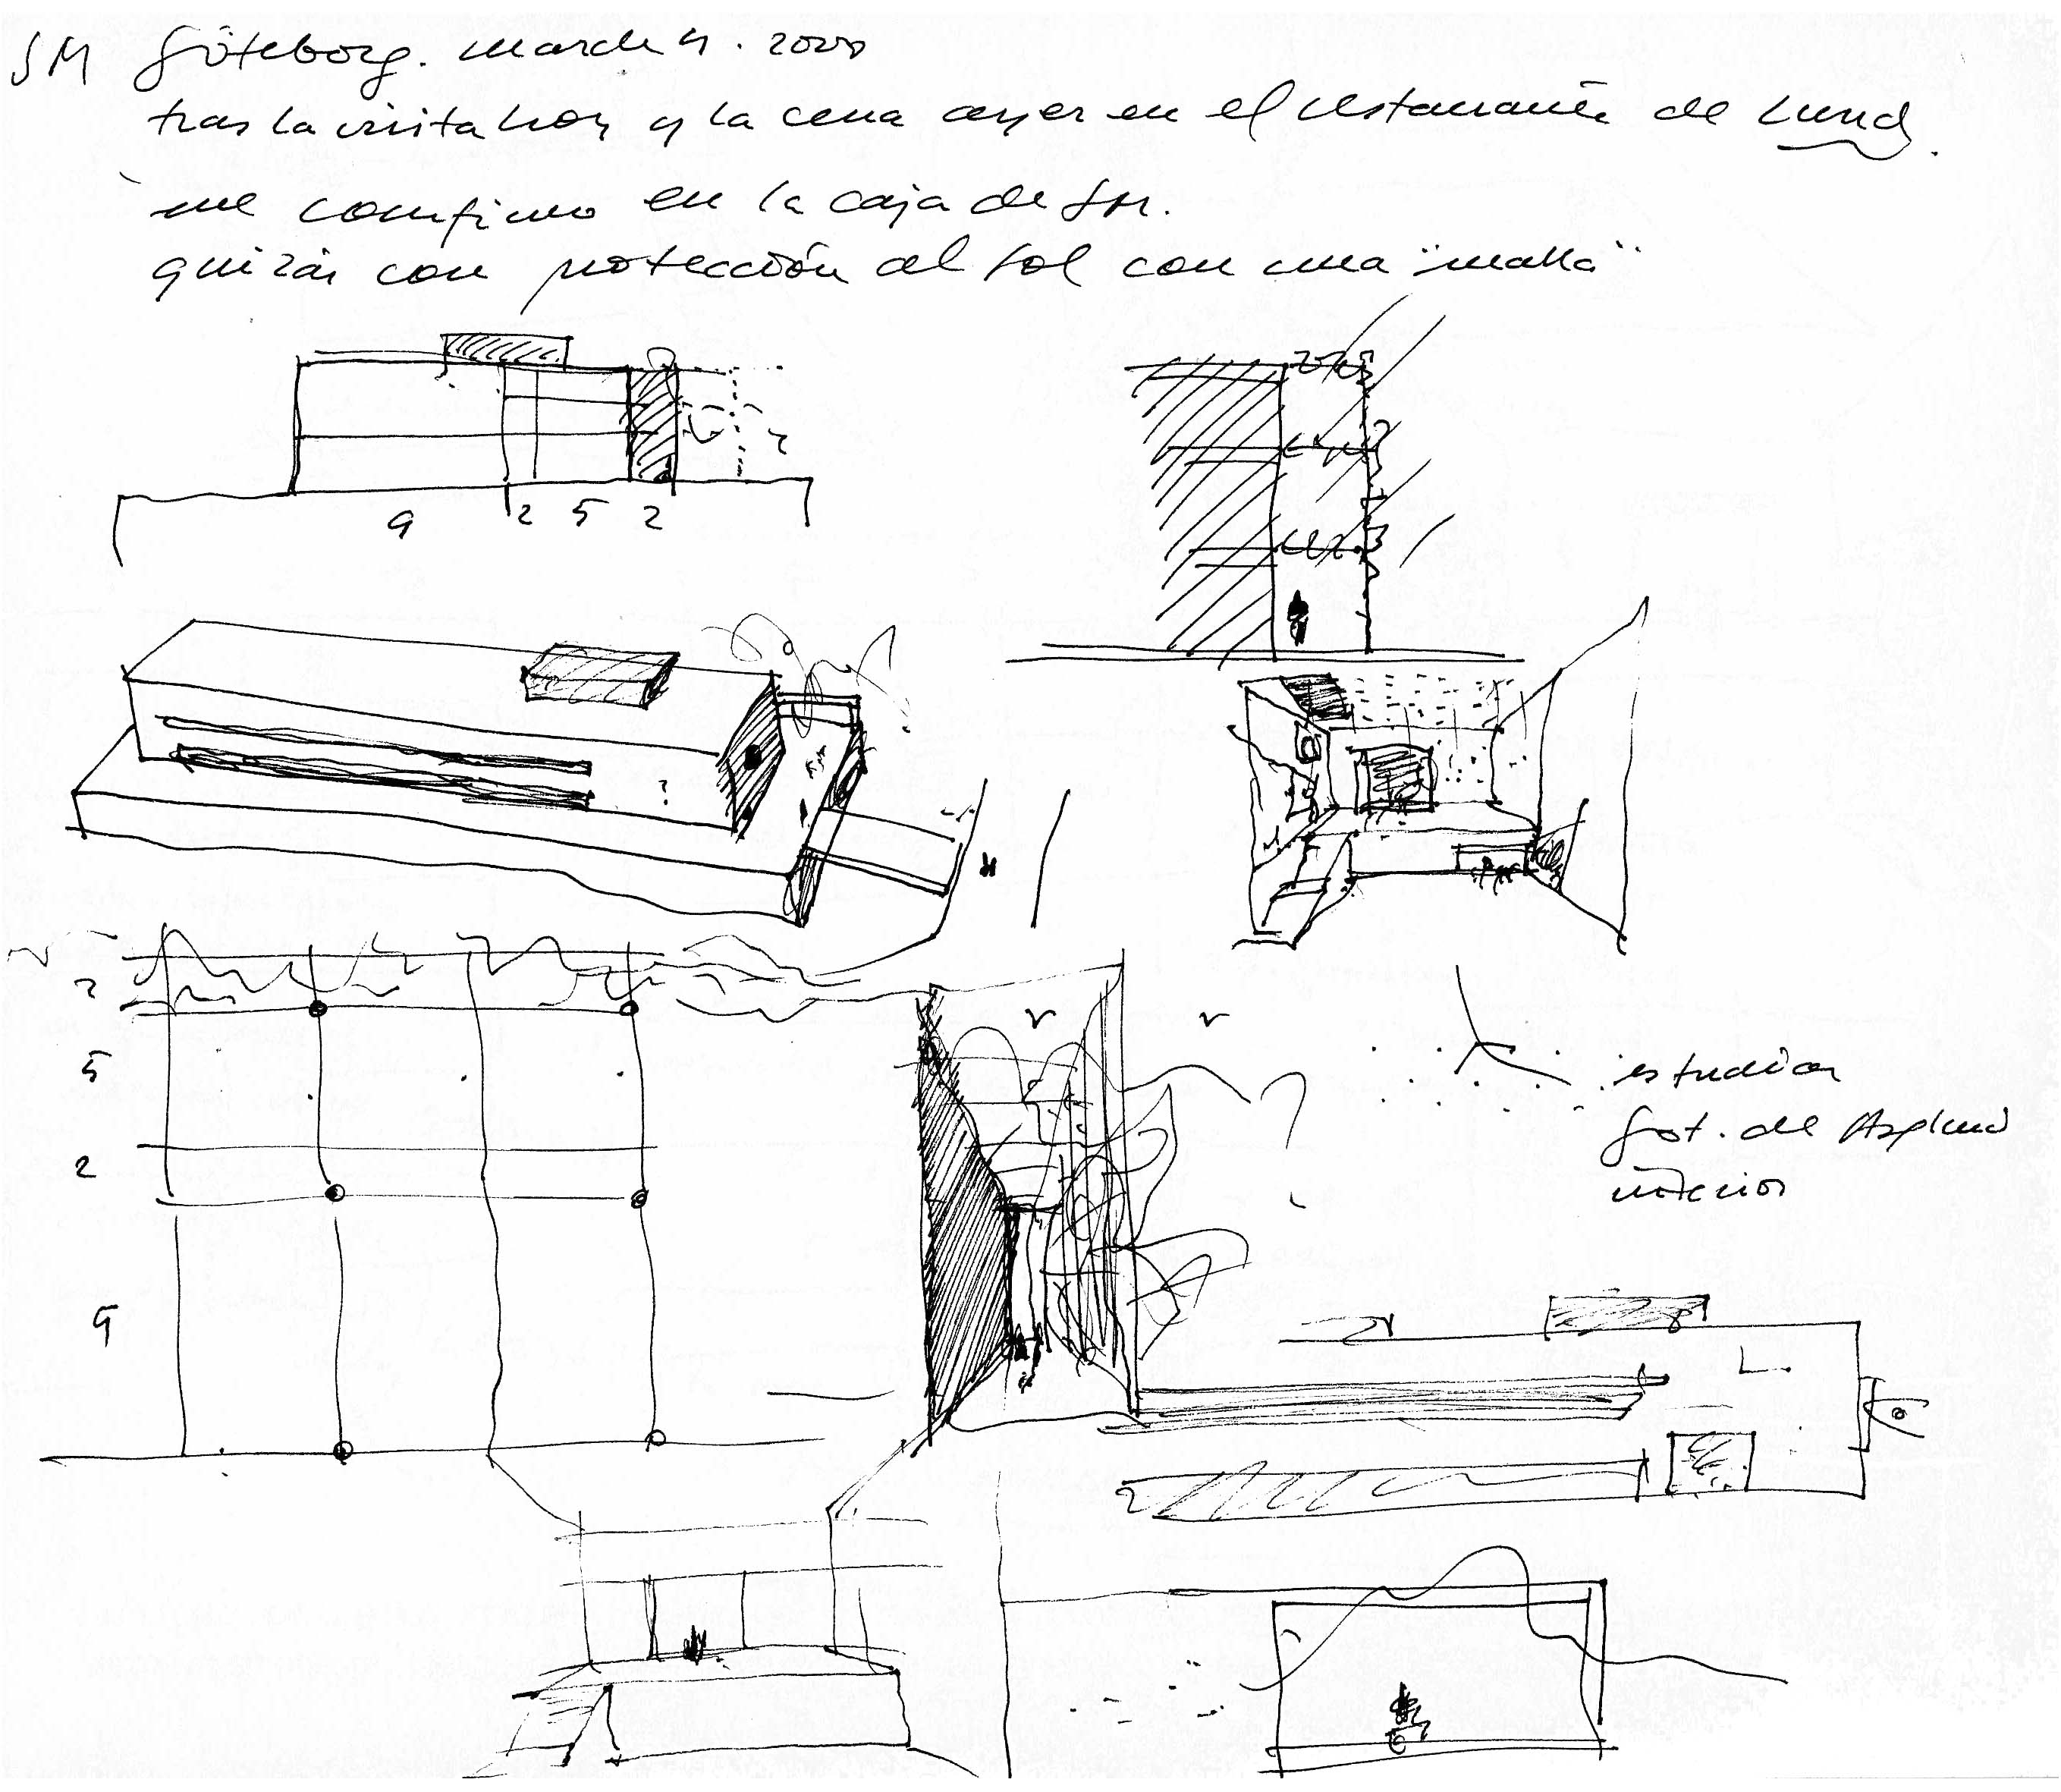 SM Göteborg. march 4. 2000
tras la visita hoy y la cena ayer en el restaurante de Lund.
me confirmo en la caja de SM.
quizás con protección al sol con una "malla"
9 2 5 2
?
2
5
2
9
?
estudiar
fot. del Asplund
interior